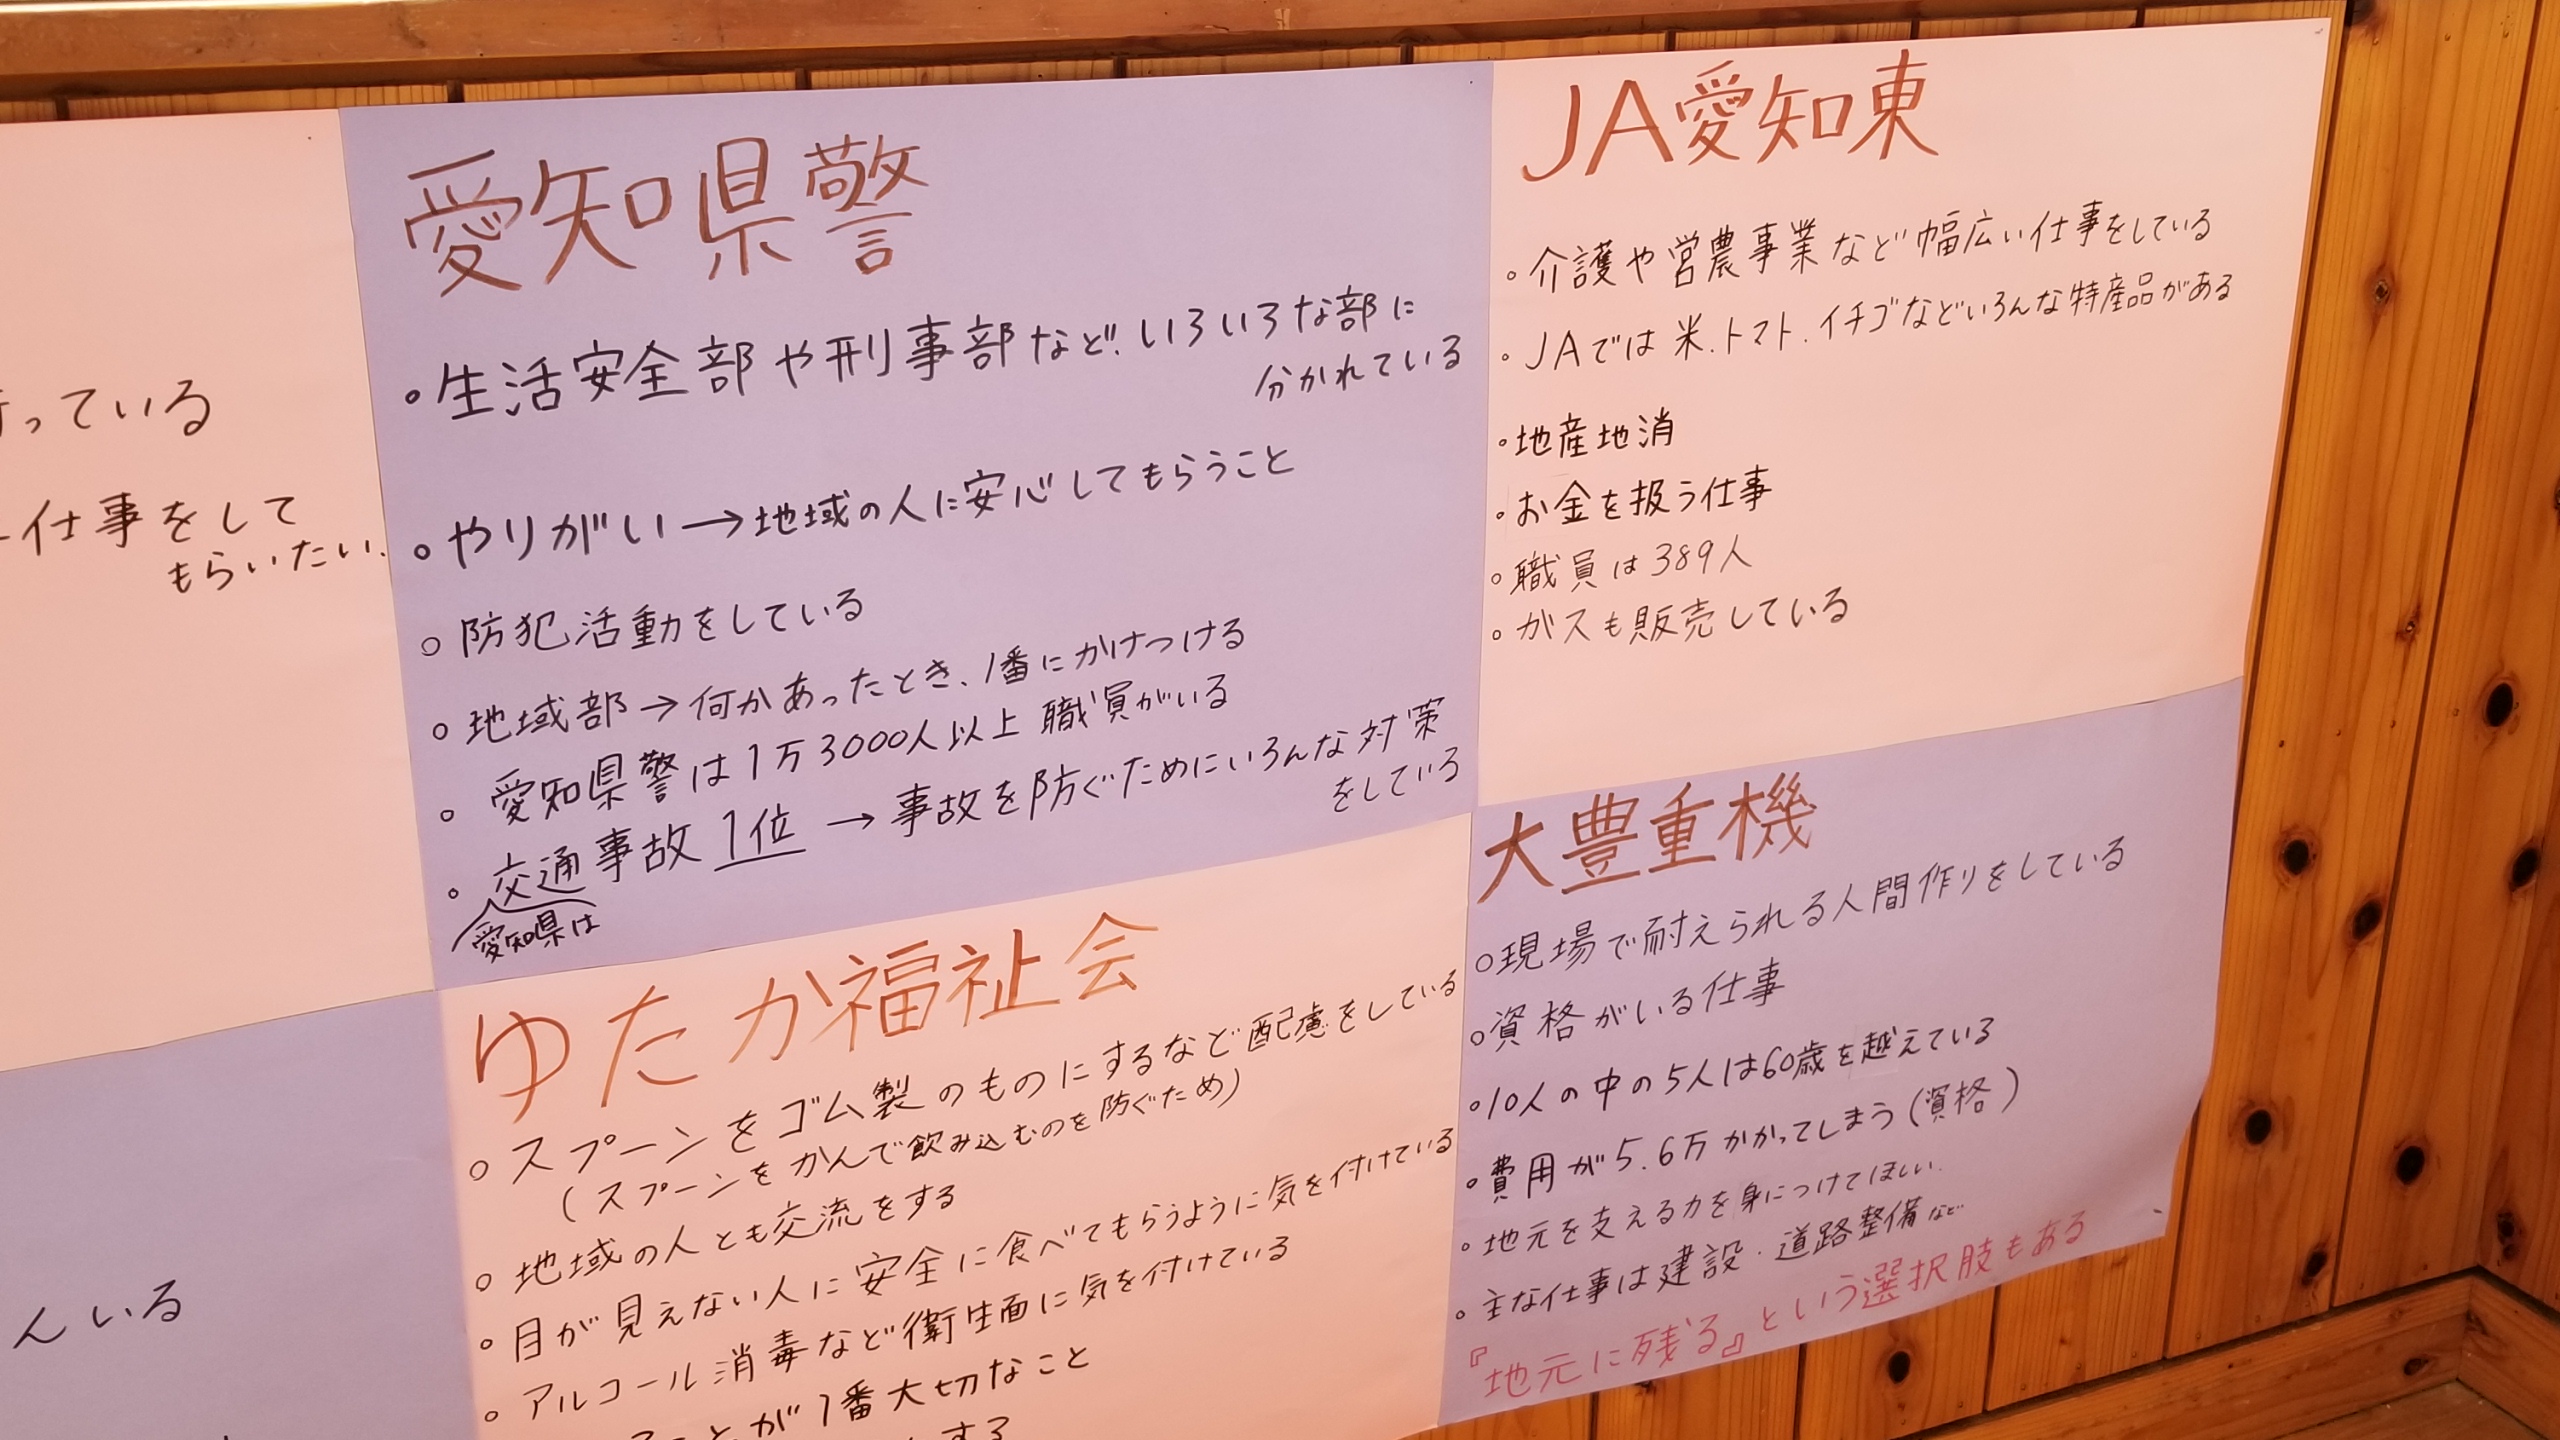 っている
仕事をして
もらいたい.
んいる
愛知県警
。生活安全部や刑事部など、いろいろな部に
分かれている
。やりがい→地域の人に安心してもらうこと
。防犯活動をしている
。地域部→何かあったとき、1番にかけつける
。愛知県警は1万3000人以上職員がいる
。交通事故1位→事故を防ぐためにいろんな対策
をしている
愛知県は
ゆたか福祉会
。スプーンをゴム製のものにするなど配慮をしている
(スプーンをかんで飲み込むのを防ぐため)
。地域の人とも交流をする
。目が見えない人に安全に食べてもらうように気を付けている
。アルコール消毒など衛生面に気を付けている
ことが1番大切なこと
する
JA愛知東
。介護や営農事業など幅広い仕事をしている
。JAでは米.トマト.イチゴなどいろんな特産品がある
。地産地消
。お金を扱う仕事
。職員は389人
。ガスも販売している
大豊重機
。現場で耐えられる人間作りをしている
。資格がいる仕事
。10人の中の5人は60歳を越えている
。費用が5.6万かかってしまう(資格)
。地元を支える力を身につけてほしい.
。主な仕事は建設・道路整備など
『地元に残る』という選択肢もある